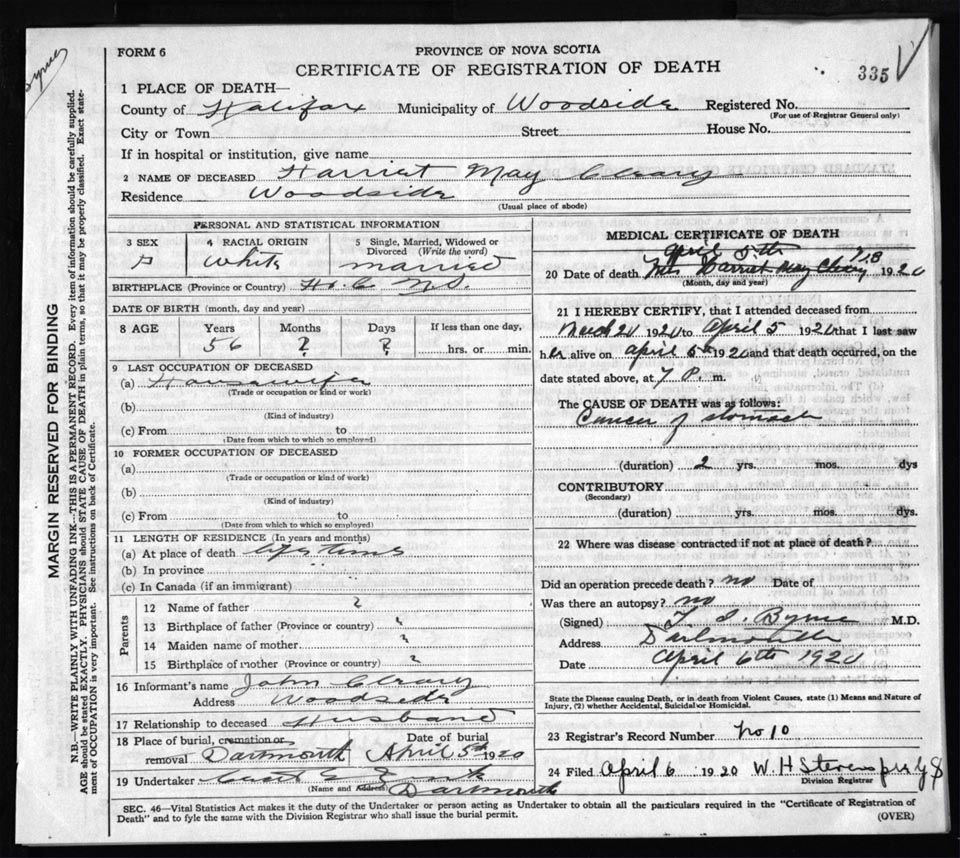 Byrne
FORM 6
PROVINCE OF NOVA SCOTIA
CERTIFICATE OF REGISTRATION OF DEATH
335
MARGIN RESERVED FOR BINDING
N.B.—WRITE PLAINLY WITH UNFADING INK—THIS IS A PERMANENT RECORD. Every item of information should be carefully supplied.
AGE should be stated EXACTLY. PHYSICIANS should STATE CAUSE OF DEATH in plain terms, so that it may be properly classified. Exact state-
ment of OCCUPATION is very important. See instructions on back of Certificate.
1 PLACE OF DEATH—
County of Halifax Municipality of Woodside Registered No.
(For use of Registrar General only)
City or Town Street House No.
If in hospital or institution, give name
2 NAME OF DECEASED Harriet May Cleary
Residence Woodside
(Usual place of abode)
PERSONAL AND STATISTICAL INFORMATION
3 SEX 4 RACIAL ORIGIN 5 Single, Married, Widowed or Divorced (Write the word)
White married
BIRTHPLACE (Province or Country) N.S.
DATE OF BIRTH (month, day and year)
8 AGE Years Months Days If less than one day,
56 ? ? hrs. or min.
9 LAST OCCUPATION OF DECEASED
(a) Housewife
(Trade or occupation or kind or work)
(b)
(Kind of industry)
(c) From to
(Date from which to which so employed)
10 FORMER OCCUPATION OF DECEASED
(a)
(Trade occupation or kind of work)
(b)
(Kind of industry)
(c) From to
(Date from which to which so employed)
11 LENGTH OF RESIDENCE (In years and months)
(a) At place of death life time
(b) In province
(c) In Canada (if an immigrant)
Parents
12 Name of father ?
13 Birthplace of father (Province or country) ?
14 Maiden name of mother ?
15 Birthplace of mother (Province or country) ?
16 Informant's name John Cleary
Address Woodside
17 Relationship to deceased Husband
18 Place of burial, cremation or removal Dartmouth Date of burial April 5th 1920
19 Undertaker
(Name and Address) Dartmouth
MEDICAL CERTIFICATE OF DEATH
April 5th
20 Date of death Mrs Harriet May Cleary 1920
(Month, day and year)
21 I HEREBY CERTIFY, that I attended deceased from
March 21 1920 to April 5 1920 that I last saw
her alive on April 5th 1920 and that death occurred, on the
date stated above, at 7 P. m.
The CAUSE OF DEATH was as follows:
Cancer of stomach
(duration) 2 yrs. mos. dys
CONTRIBUTORY
(Secondary)
(duration) yrs. mos. dys.
22 Where was disease contracted if not at place of death?
Did an operation precede death? no Date of
Was there an autopsy? no
(Signed) Byrne M.D.
Address Dartmouth
Date April 6th 1920
State the Disease causing Death, or in death from Violent Causes, state (1) Means and Nature of
Injury, (2) whether Accidental, Suicidal or Homicidal.
23 Registrar's Record Number No 10
24 Filed April 6 1920 W. H. Stevens
Division Registrar
SEC. 46—Vital Statistics Act makes it the duty of the Undertaker or person acting as Undertaker to obtain all the particulars required in the "Certificate of Registration of
Death" and to fyle the same with the Division Registrar who shall issue the burial permit.
(OVER)